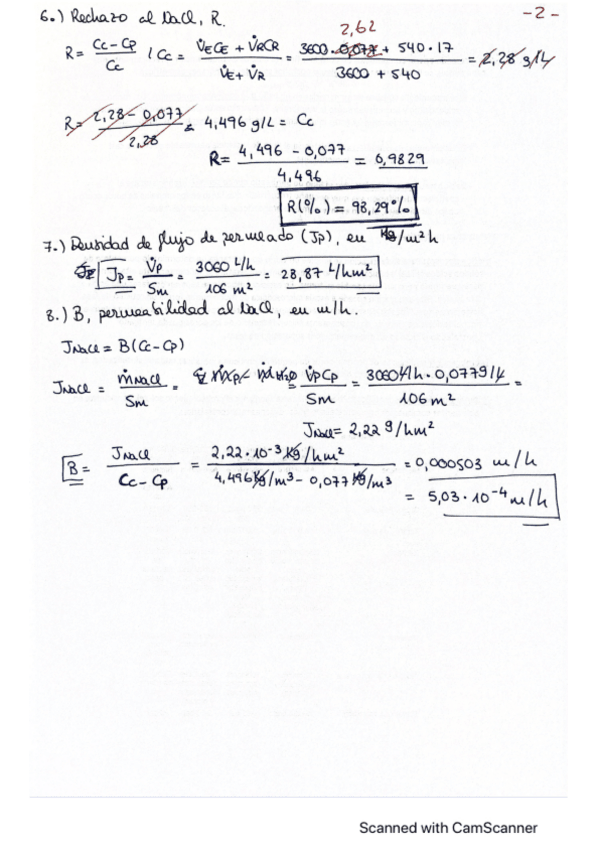 6.) Rechazo al NaCl, R.
-2-
2,62
R = Cc - Cp / Cc / Cc = V̇E CE + V̇R CR / V̇E + V̇R = 3600 · 0,077 + 540 · 17 / 3600 + 540 = 2,28 g/L
R = 2,28 - 0,077 / 2,28 = 4,496 g/L = Cc
R = 4,496 - 0,077 / 4,496 = 0,9829
R(%) = 98,29%
7.) Densidad de flujo de permeado (Jp), en Kg/m²h
Jp = V̇p / Sm = 3060 L/h / 106 m² = 28,87 L/hm²
8.) B, permeabilidad al NaCl, en m/h.
JNaCl = B (Cc - Cp)
JNaCl = ṁNaCl / Sm = V̇p Cp / Sm = 3060 L/h · 0,077 g/L / 106 m² =
JNaCl = 2,22 g/hm²
B = JNaCl / Cc - Cp = 2,22 · 10⁻³ Kg/hm² / 4,496 Kg/m³ - 0,077 Kg/m³ = 0,000503 m/h
= 5,03 · 10⁻⁴ m/h
Scanned with CamScanner